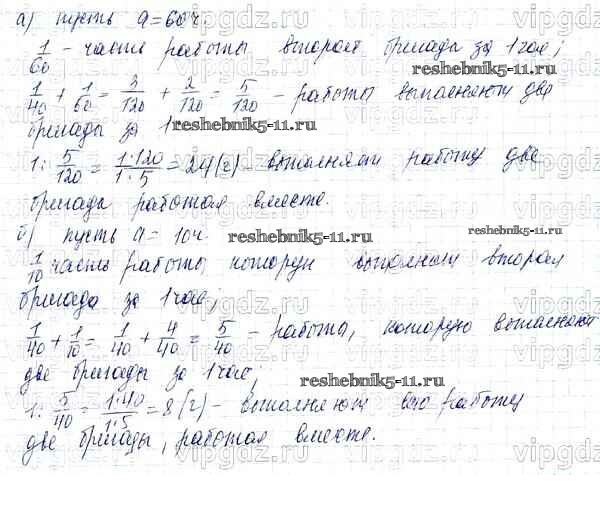 а) пусть a = 60 ч.
1/60 - часть работы вторая бригада за 1 час;
1/40 + 1/60 = 3/120 + 2/120 = 5/120 - работы выполняют две
бригады за 1
1 : 5/120 = 1·120/1·5 = 24 (г) - выполняют работу две
бригады работая вместе.
б) пусть a = 10 ч.
1/10 часть работы которую выполняет вторая
бригада за 1 час;
1/40 + 1/10 = 1/40 + 4/40 = 5/40 - работа, которую выполняют
две бригады за 1 час;
1 : 5/40 = 1·40/1·5 = 8 (г) - выполняют всю работу
две бригады, работая вместе.
reshebnik5-11.ru
reshebnik5-11.ru
reshebnik5-11.ru
reshebnik5-11.ru
reshebnik5-11.ru
vipgdz.ru